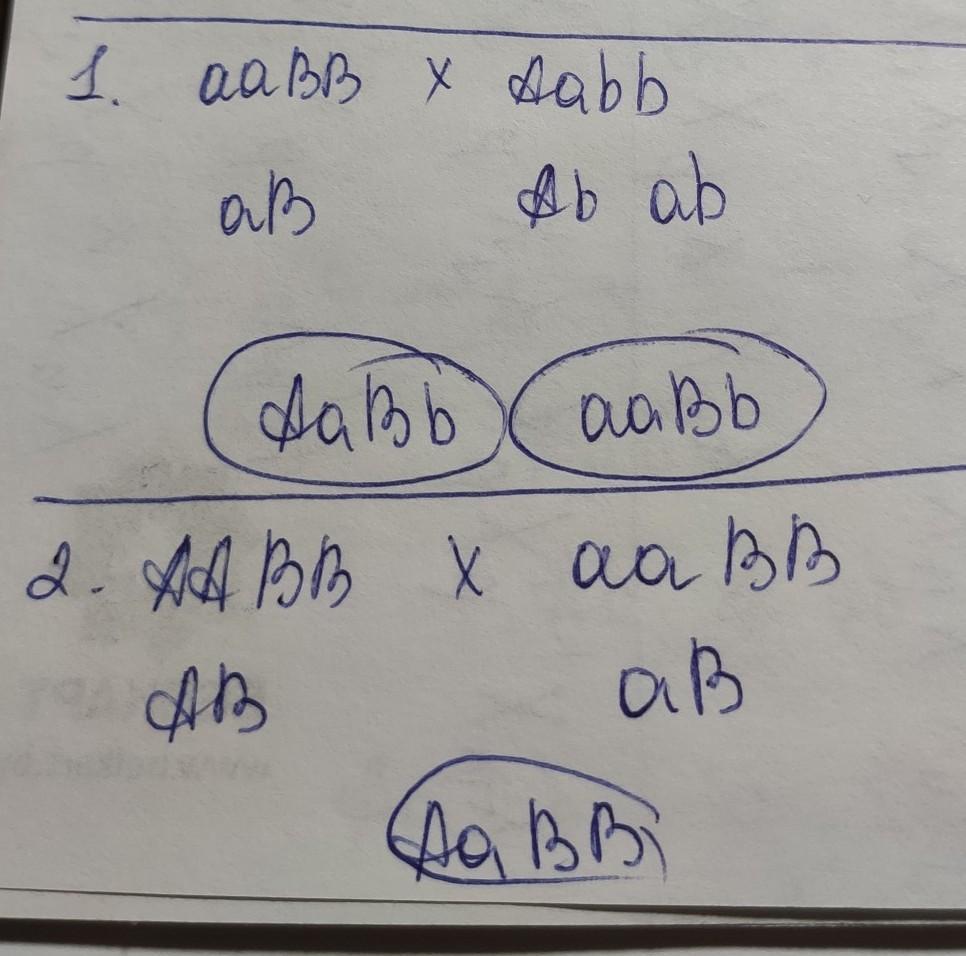 1. aaBB x Aabb
aB Ab ab
AaBb aaBb
2. AABB x aaBB
AB aB
AaBB